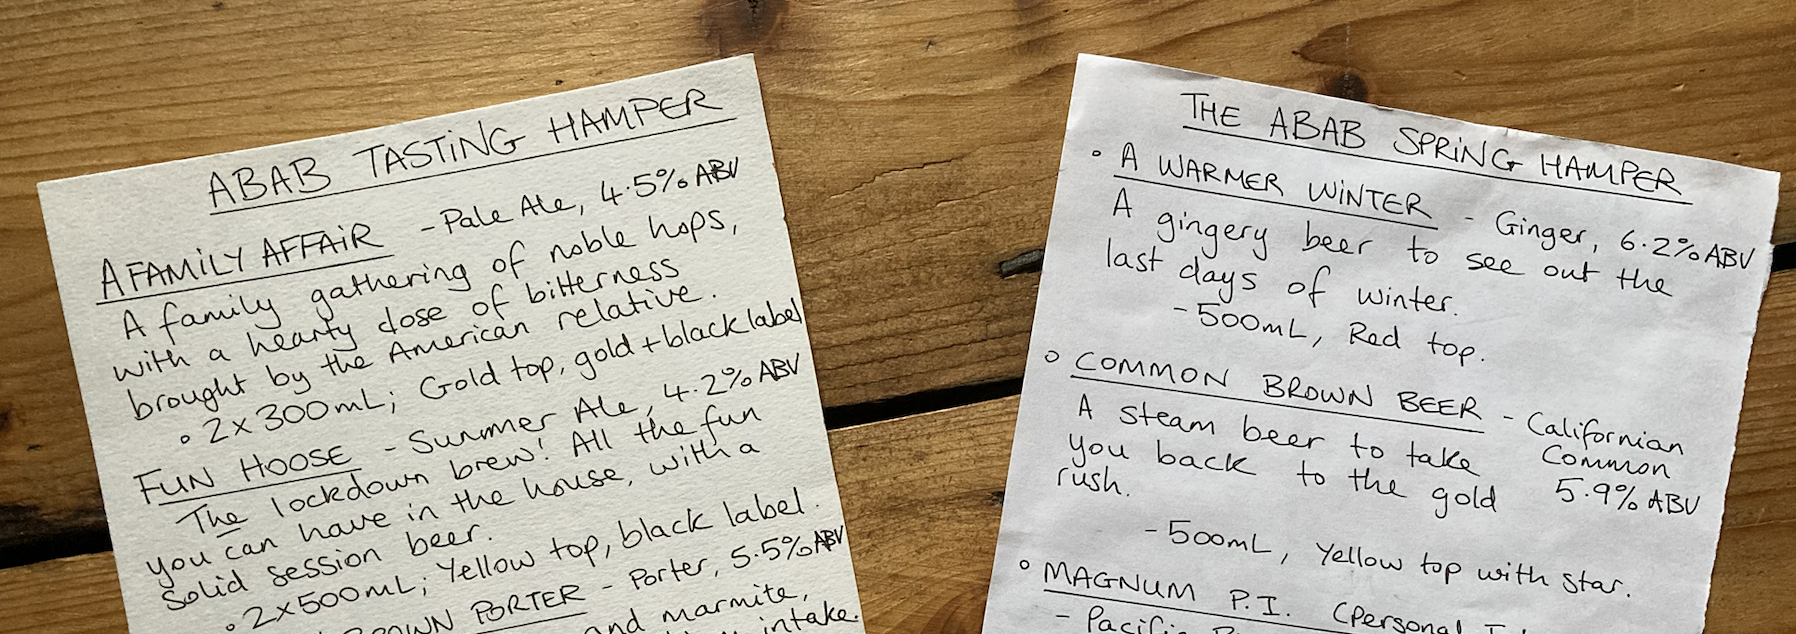 ABAB TASTING HAMPER
A FAMILY AFFAIR - Pale Ale, 4.5% ABV
A family gathering of noble hops,
with a hearty dose of bitterness
brought by the American relative.
∘ 2x300mL; Gold top, gold + black label
FUN HOOSE - Summer Ale, 4.2% ABV
The lockdown brew! All the fun
you can have in the house, with a
solid session beer.
∘ 2x500mL; Yellow top, black label.
BROWN PORTER - Porter, 5.5% ABV
and marmite,
intake.
THE ABAB SPRING HAMPER
∘ A WARMER WINTER - Ginger, 6.2% ABV
A gingery beer to see out the
last days of winter.
- 500mL, Red top.
∘ COMMON BROWN BEER - Californian
Common
5.9% ABV
A steam beer to take
you back to the gold
rush.
- 500mL, Yellow top with star.
∘ MAGNUM P.I. (Personal
- Pacific